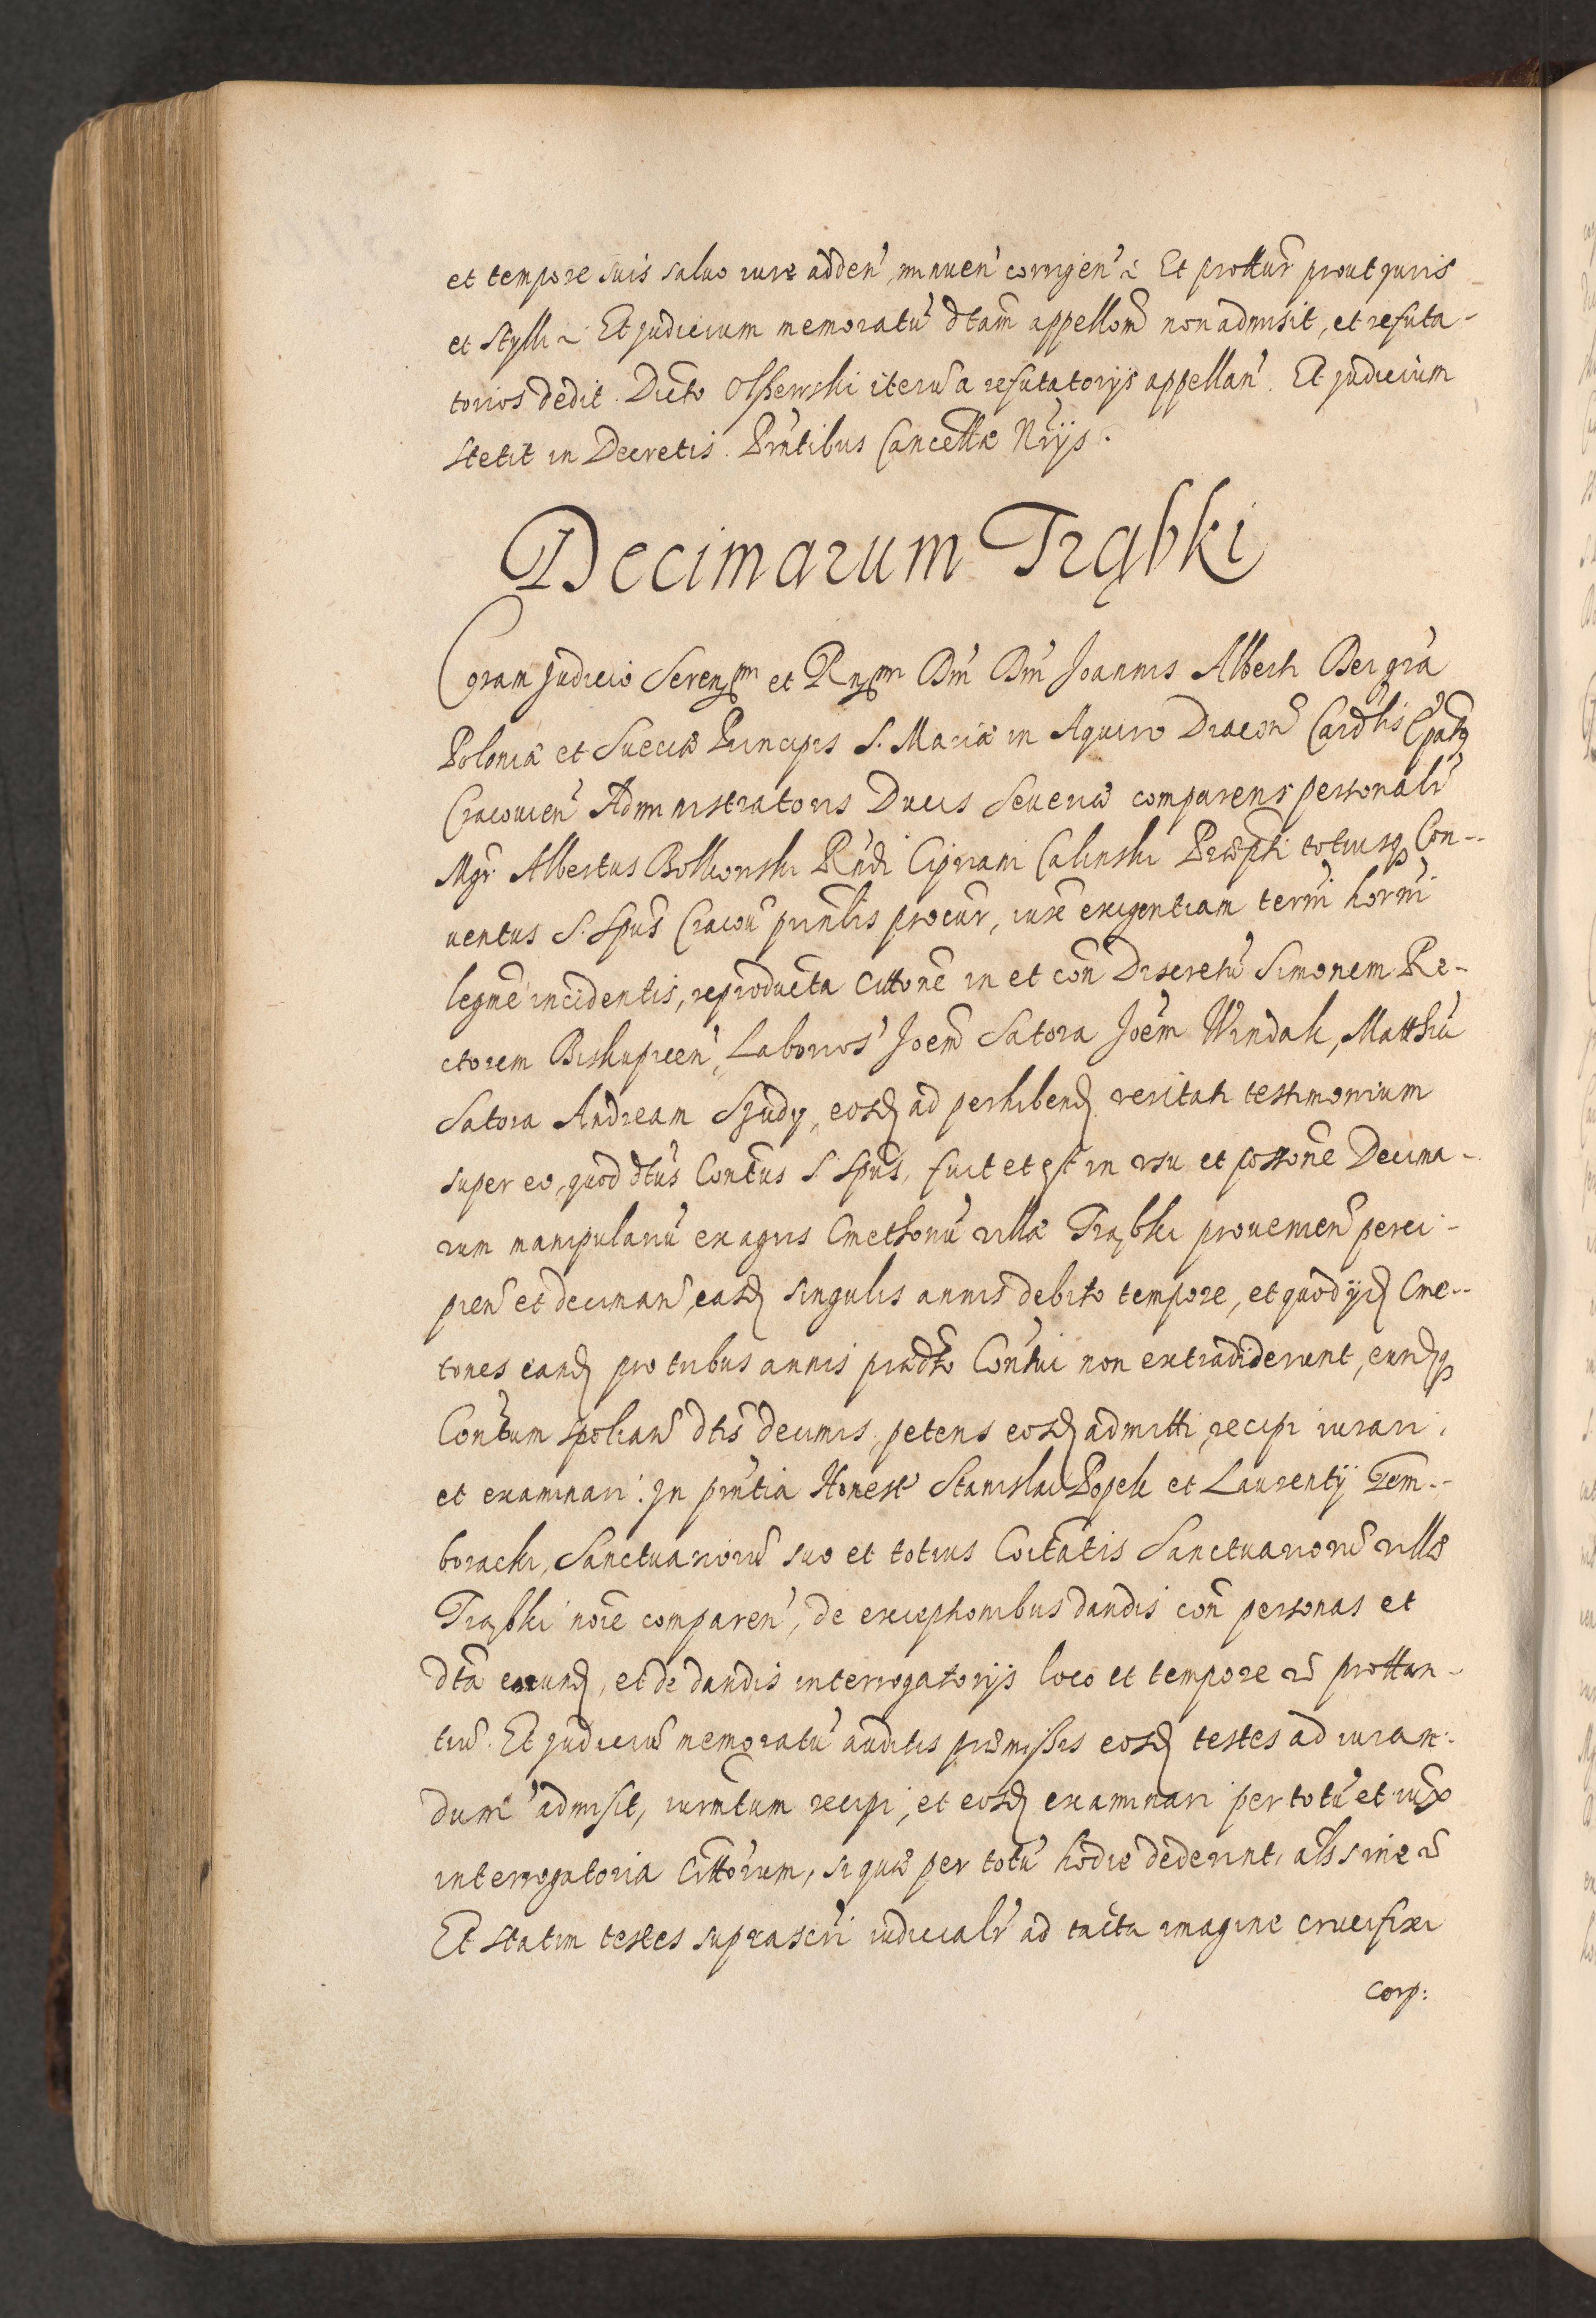 et tempore suis saluo iure adden' minuen' corrigen' &. Et prottur prout juris
et Styli &. Et judicium memoratu' dtam appellom non admisit, et refuta-
torios dedit. Dicto Olszewski iteru a refutatorijs appellan'. Et judicium
stetit in Decretis. Prntibus Cancellæ Nrijs.
Decimarum Trąbki
Coram judicio Serenssmi et Rndssmi Dni Dni Joannis Alberti Dei gra
Poloniæ et Sueciæ Principis S. Mariæ in Aquiro Diacon Cardlis Epatq
Cracouien' Administratoris Ducis Seueriæ comparens personalr
Mgr. Albertus Bolkowski Rndi Cipriani Calinski Præpti totiusq Con--
uentus S. Spus Cracou prinlis procur, iuxe exigentiam termi horni
legme incidentis, reproducta Cittone in et con Discretu Simonem Re-
ctorem Biskupicen', Laborios' Joem Satora Joem Windak, Matthiu
Satora Andream Szudy, eosd ad perhibend veritati testimonium
super eo, quod dtus Contus S. Spus, fuit et est in vsu et possone Decima-
rum manipulariu ex agris Cmethonu villæ Trąbki prouenien' perci-
pien et deciman, easd singulis annis debito tempore, et quod ijd Cme--
tones eand pro tribus annis prædto Contui non extradiderunt, eundq
Contum spolian dtis decimis, petens eosd admitti recipi iurari,
et examinari. In prntia Honest Stanislai Popek et Laurentij Tem--
boracki, Sanctuarioru suo et totius Coitatis Sanctuarioru villæ
Trąbki noie comparen', de exceptionibus dandis con personas et
dta eorund, et de dandis interrogatorijs loco et tempore & prottan-
tiu. Et judiciu memoratu auditis præmissis eosd testes ad iuran-
dum admisit, iurmtum recipi, et eosd examinari per totu et iux
interrogatoria Cittorum, si quæ per totu hodie dederint, als sine &
Et statim testes suprascri iudicialr ad tacta imagine crucifixi
corp: